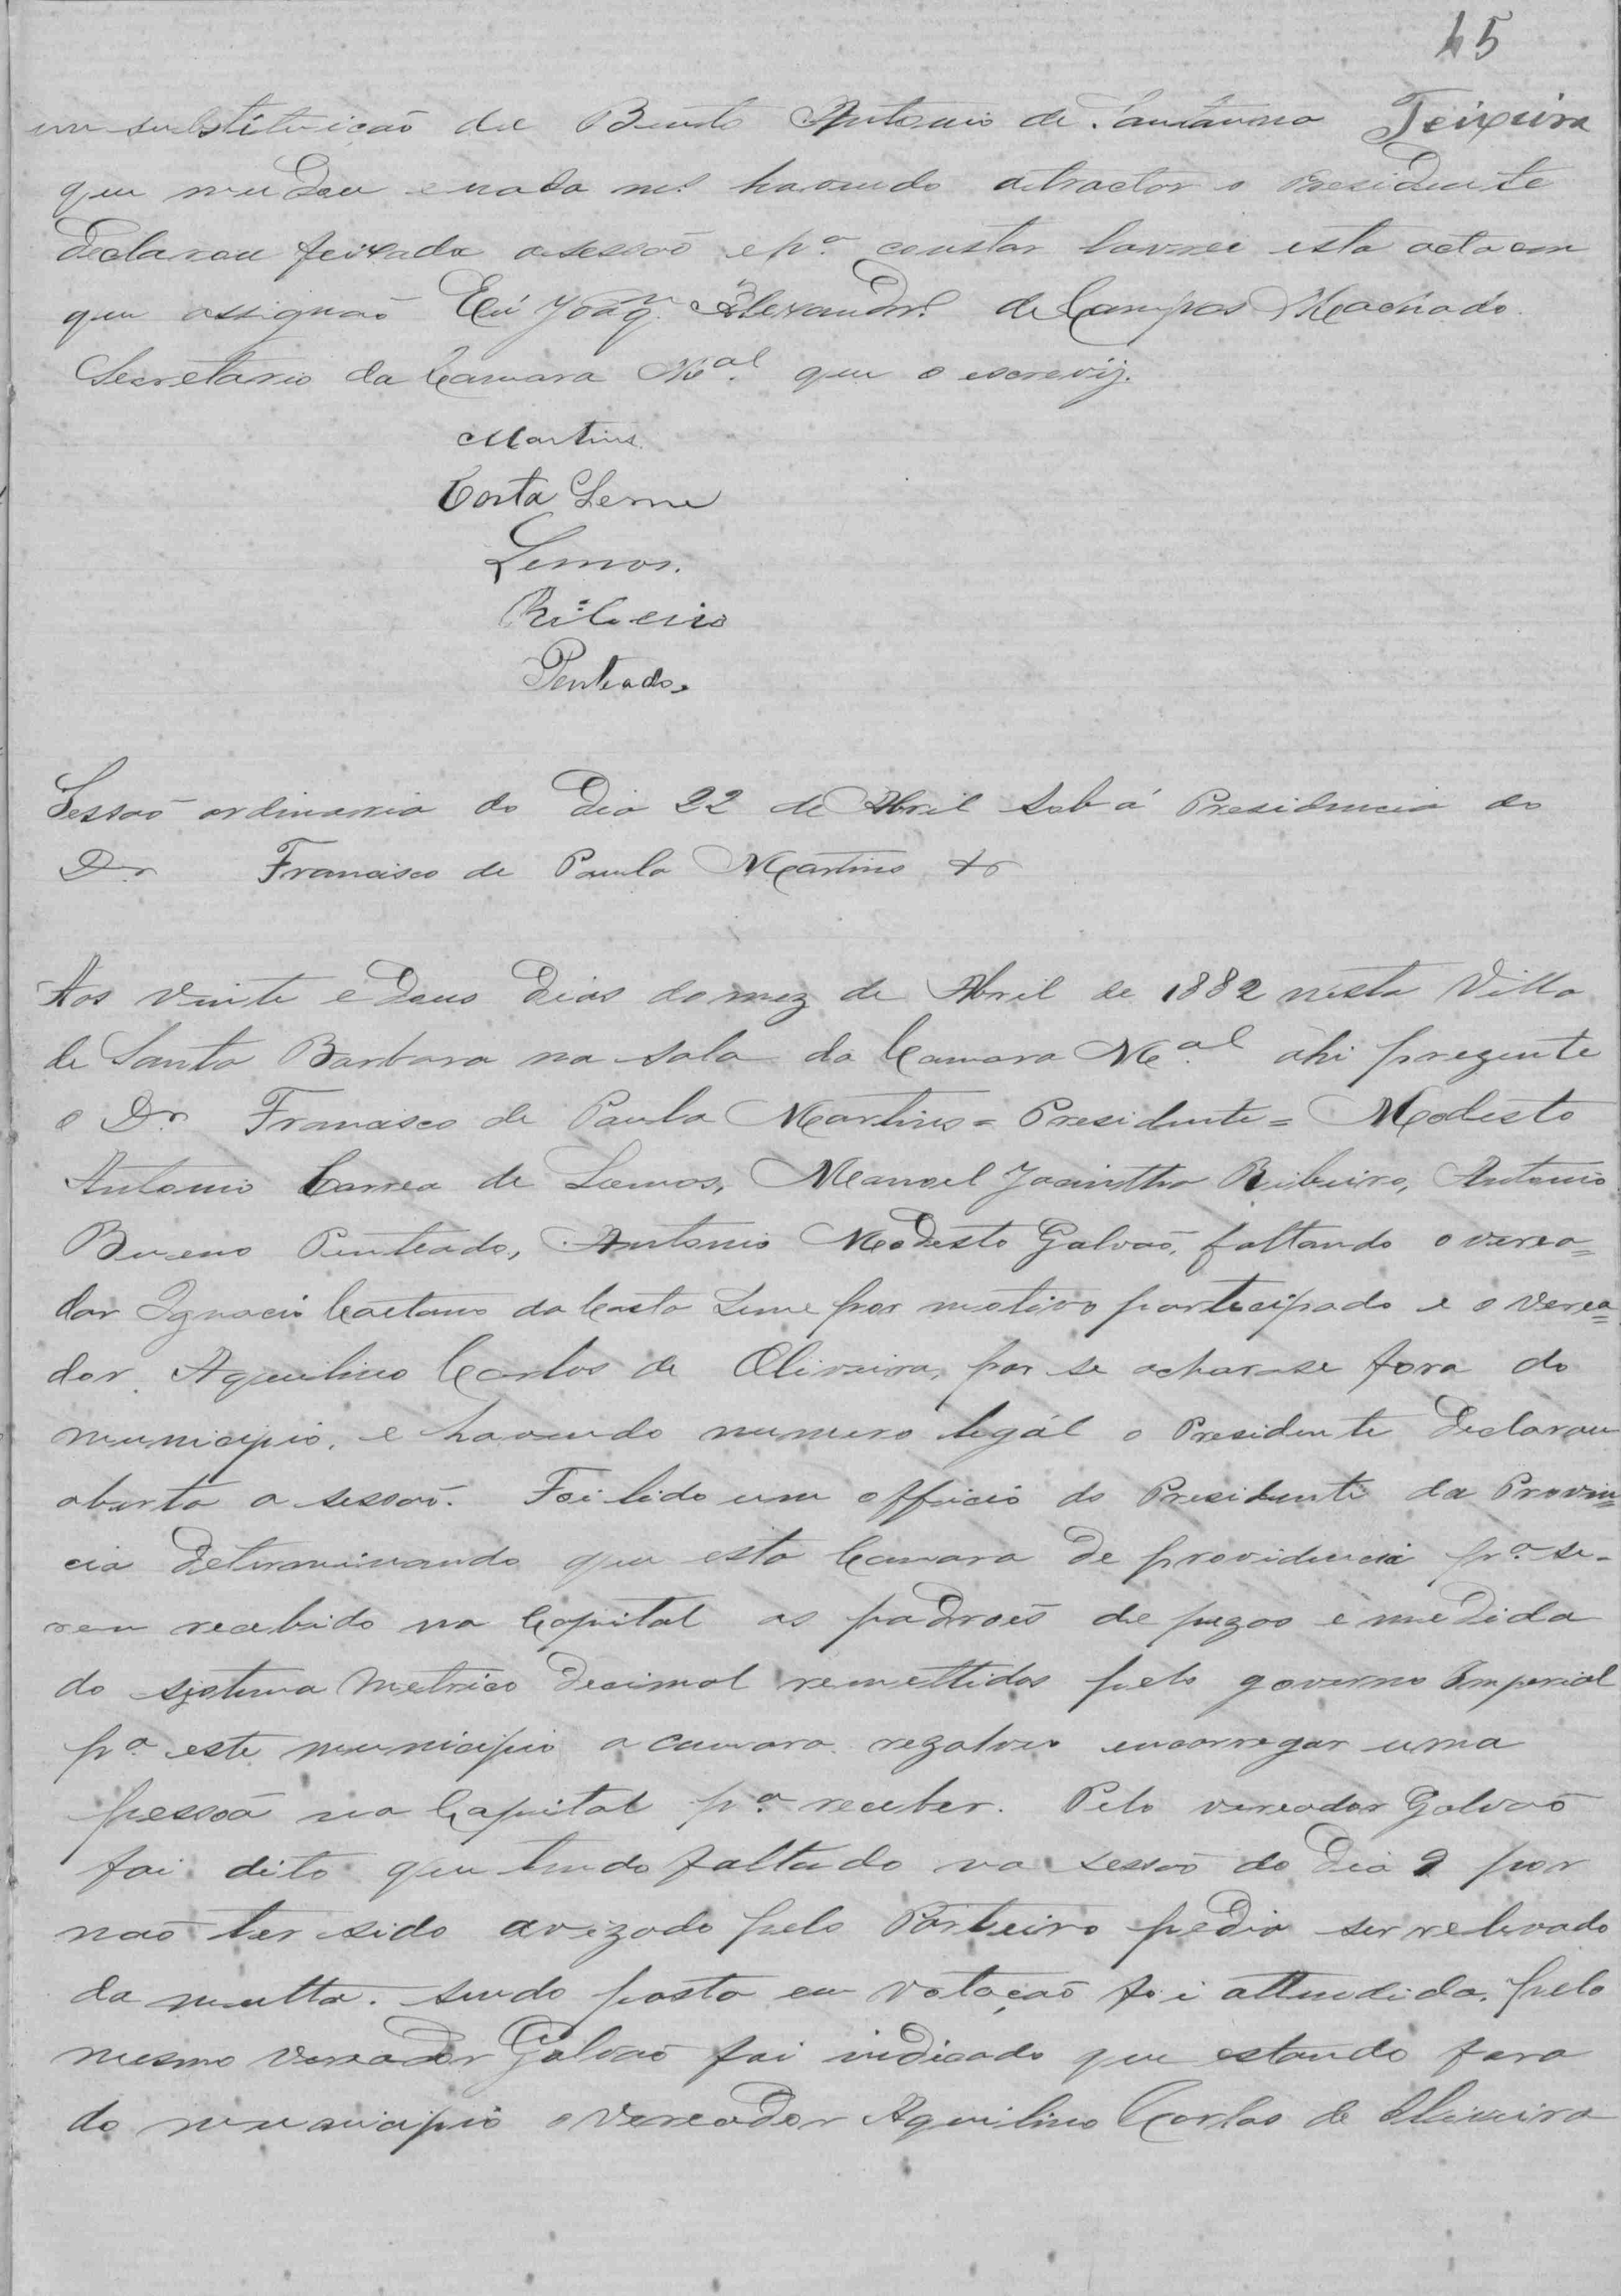 45
em substituição de Bento Antonio de Sant'anna Teixeira
que mudou e nada ms havendo atractor o Presidente
declarou feixada a sessaõ e pª constar lavrei esta acta em
que assignaõ Eu Joaqm Alexandre de Campos Machado
Secretario da Camara Mal que o escrevij.
Martins
Costa Leme
Lemos.
Ribeiro
Penteado.
Sessaõ ordinaria do dia 22 de Abril sob á Presidencia do
Dr Francisco de Paula Martins
Aos vinte e dous dias do mez de Abril de 1882 nesta Villa
de Santa Barbara na sala da Camara Mal ahi prezente
o Dr Francisco de Paula Martins = Presidente = Modesto
Antonio Correa de Lemos, Manoel Jacinttho Ribeiro, Antonio
Bueno Penteado, Antonio Modesto Galvaõ, faltando o verea=
dor Ignacio Caetano da Costa Leme por motivo participado e o verea=
dor Aquilino Carlos de Oliveira, por se achar-se fora do
municipio, e havendo numero legál o Presidente declarou
aberta a sessaõ. Foi lido um officio do Presidente da Provin=
cia determinando que esta Camara de providencia pª se-
rem recebido na Capital os padroẽs de pezos e medida
do sistema Metrico decimal remettidos pelo governo Imperial
pª este municipio a camara rezolveu encarregar uma
pessoa na Capital pª receber. Pelo vereador Galvaõ
foi dito que tendo faltado na sessaõ do dia 9 por
naõ ter sido avizado pelo Porteiro pedia ser relevado
da multa. sendo posta em votaçaõ foi attendida. pelo
mesmo vereador Galvaõ foi indicado que estando fora
do municipio o vereador Aquilino Carlos de Oliveira